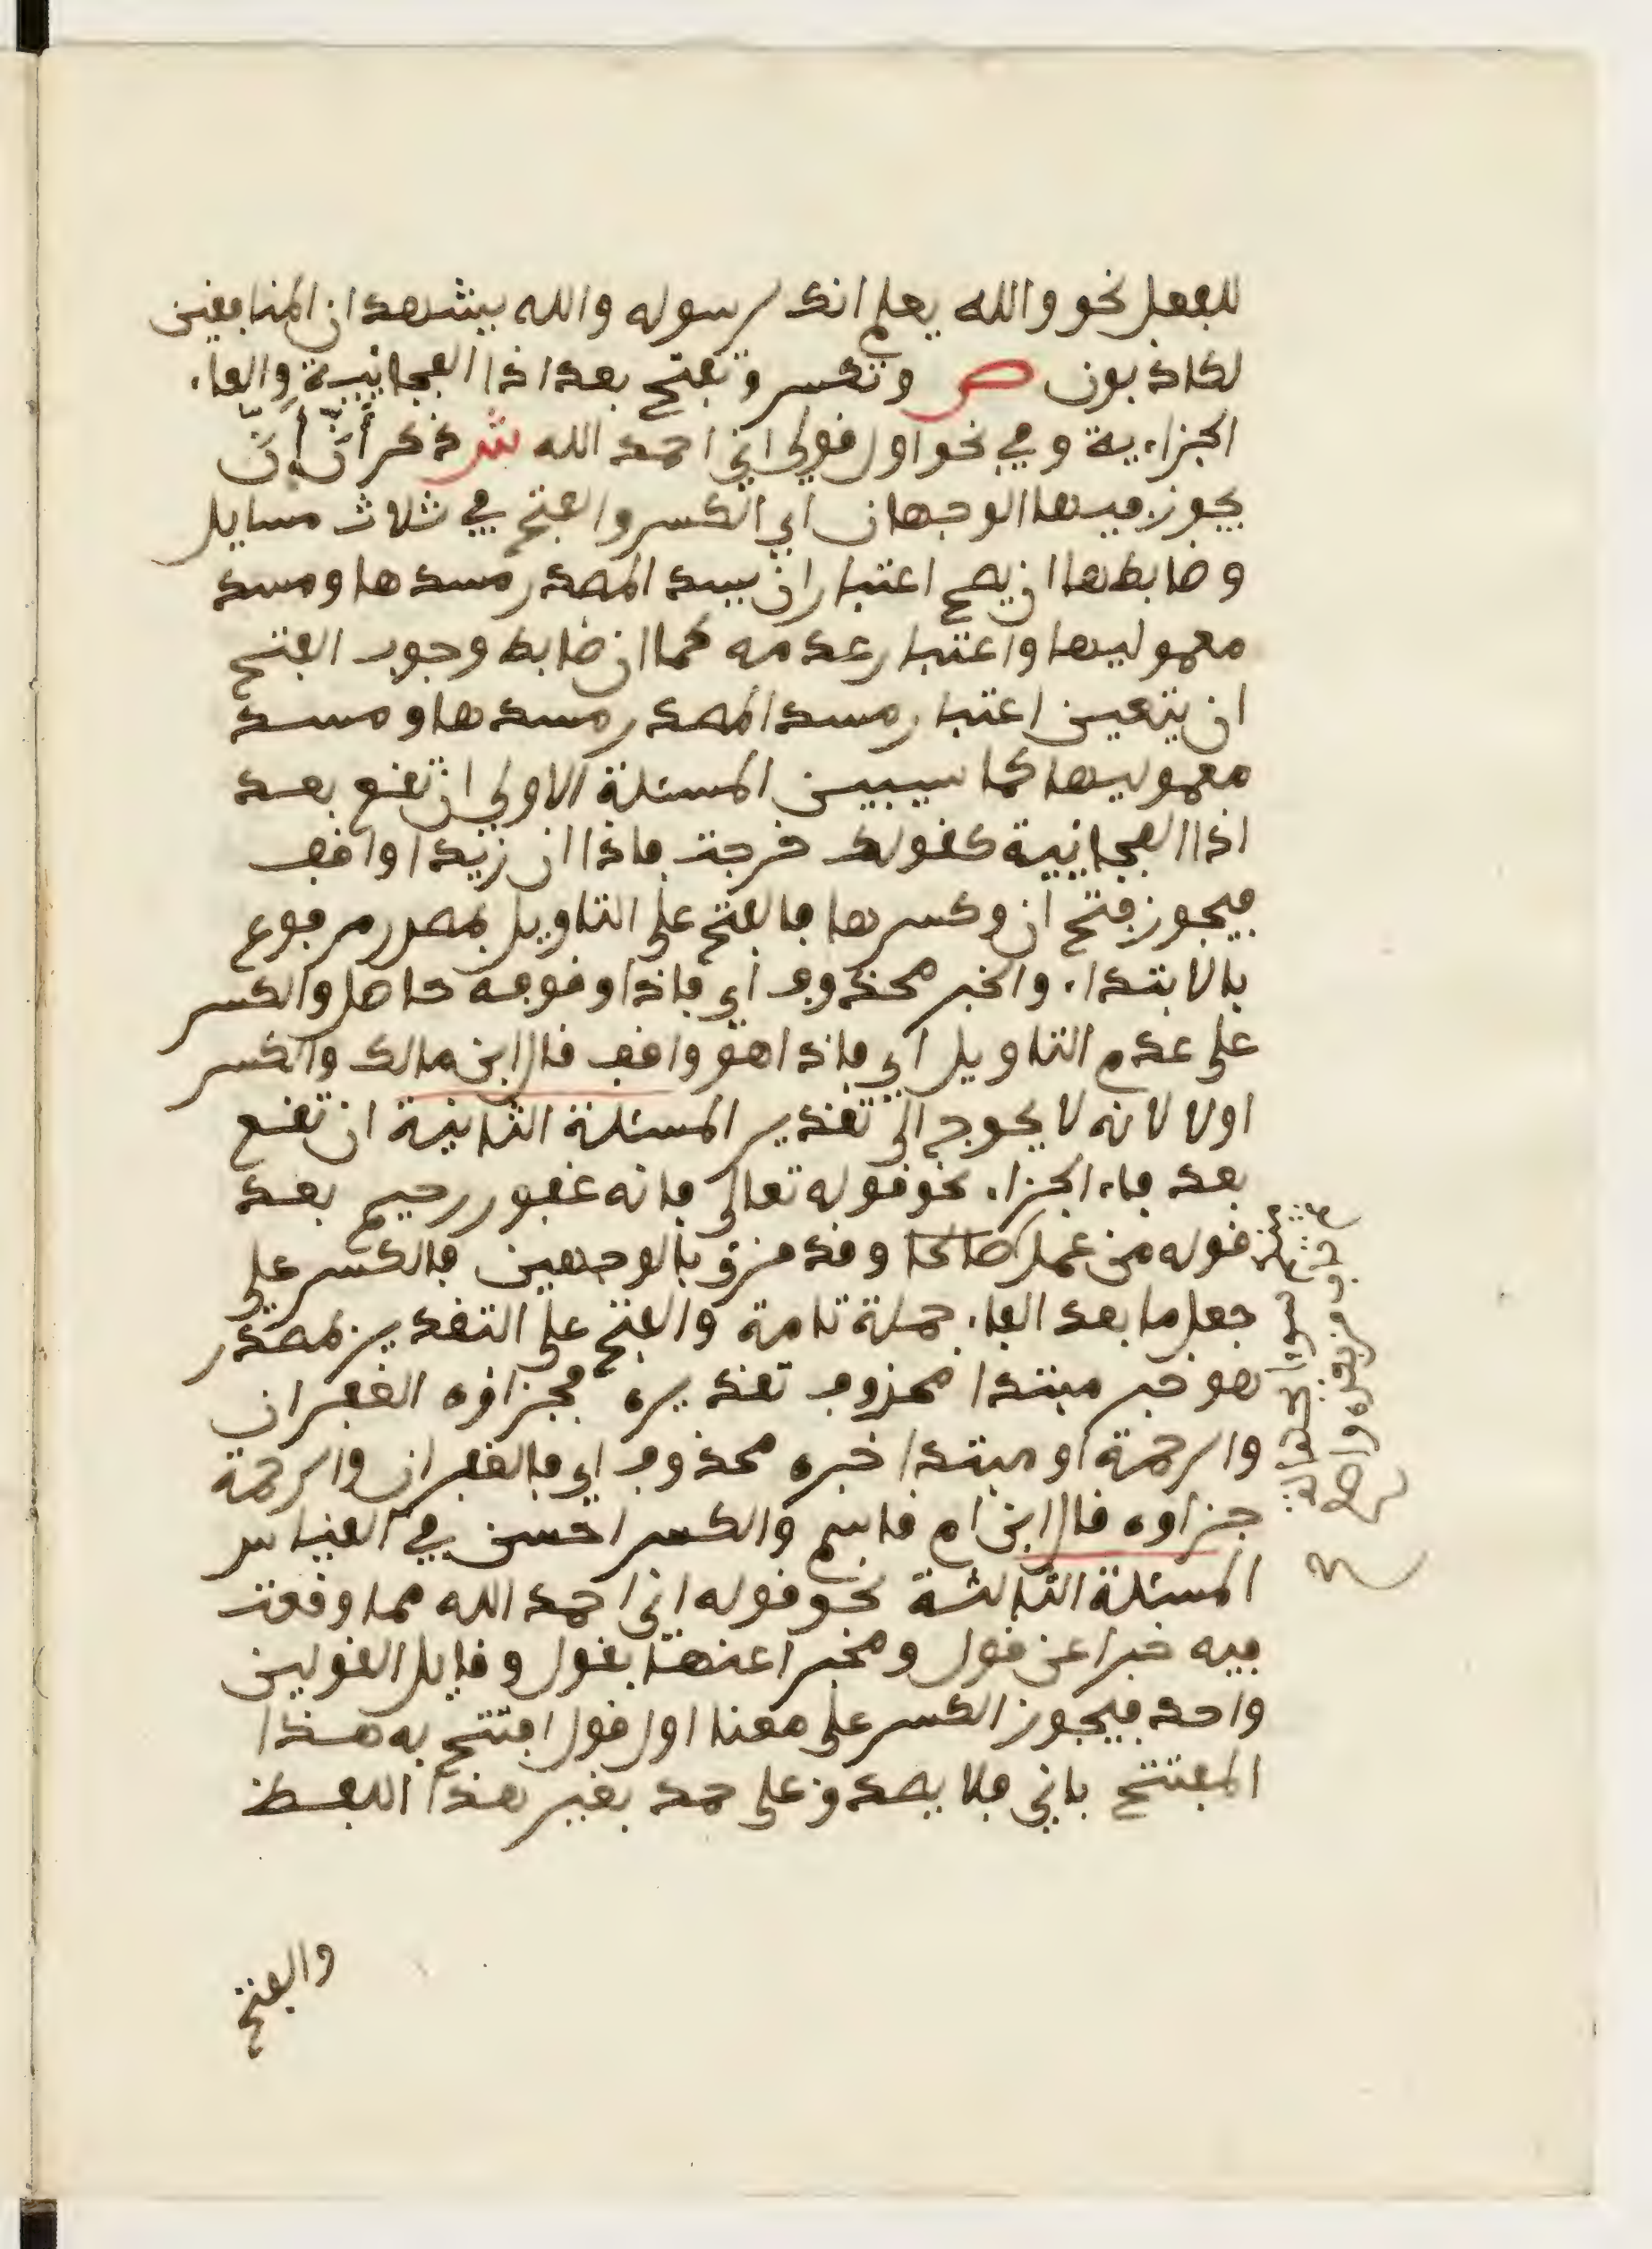 للفعل نحو والله يعلم انك لرسوله والله يشهد ان المنافقين
لكاذبون ص وتكسر وتفتح بعد اذا الفجائيية والفاء
الجزاءية وفي نحو اول قولي اني احمد الله ش ذكر أن أنّ
يجوز فيها الوجهان اي الكسر والفتح في ثلاث مسايل
وضابطها ان يصح اعتبار ان يسد المصدر مسدها ومسد
معموليها واعتبار عدمه كما ان ضابط وجوب الفتح
ان يتعين اعتبار مسد المصدر مسدها ومسد
معموليها كما سيبين المسئلة الاولى ان تقع بعد
اذا الفجائيية كقولك خرجت فاذا ان زيدا واقف
فيجوز فتح ان وكسرها فالفتح على التاويل بمصدر مرفوع
بالابتداء والخبر محذوف اي فاذا وقوفه حاصل والكسر
على عدم التاويل اي فاذا هو واقف قال ابن مالك والكسر
اولا لانه لا يحوج الى تقدير المسئلة الثانية ان تقع
بعد فاء الجزاء نحو قوله تعالى فانه غفور رحيم بعد
قوله من عمل صالحا وقد قرئ بالوجهين فالكسر على
جعل ما بعد الفاء جملة تامة والفتح على التقدير بمصدر
هو خبر مبتدا محذوف تقديره فجزاؤه الغفران
والرحمة او مبتدا خبره محذوف اي فالغفران والرحمة
جزاوه قال ابن ام قاسم والكسر احسن في القياس
المسئلة الثالثة نحو قوله اني احمد الله مما وقعت
فيه خبرا عن قول ومخبرا عنها بقول وقايل القولين
واحد فيجوز الكسر على معنا اول قول افتتح به هذا
المفتتح باني فلا يصدق على حمد بغير هذا اللفظ
والفتح